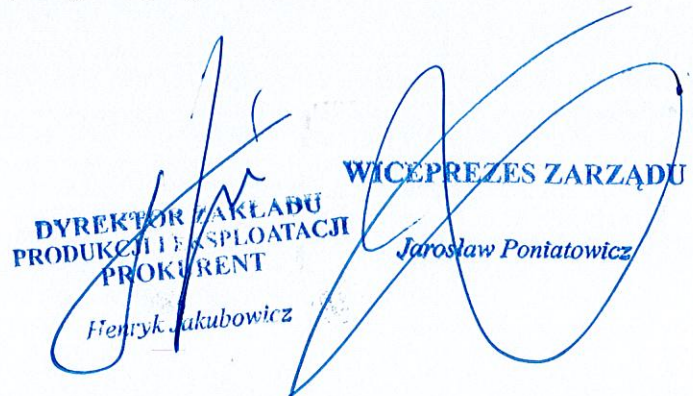 DYREKTOR ZAKŁADU
PRODUKCJI I EKSPLOATACJI
PROKURENT
Henryk Jakubowicz
WICEPREZES ZARZĄDU
Jarosław Poniatowicz